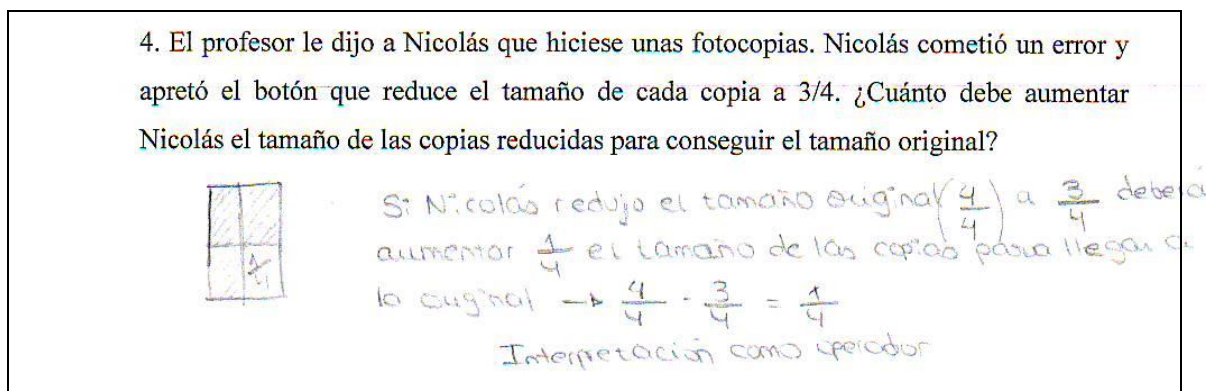 4. El profesor le dijo a Nicolás que hiciese unas fotocopias. Nicolás cometió un error y
apretó el botón que reduce el tamaño de cada copia a 3/4. ¿Cuánto debe aumentar
Nicolás el tamaño de las copias reducidas para conseguir el tamaño original?
1/4
Si Nicolás redujo el tamaño original (4/4) a 3/4 deberá
aumentar 1/4 el tamaño de las copias para llegar a
lo original → 4/4 - 3/4 = 1/4
Interpretación como operador